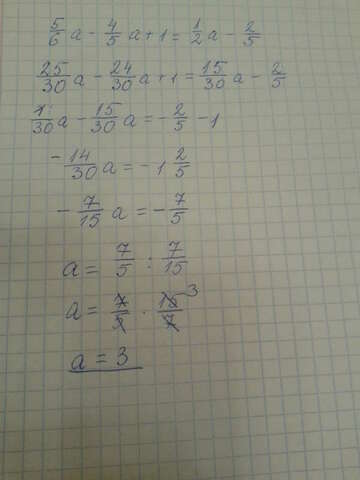 5/6 a - 4/5 a + 1 = 1/2 a - 2/5
25/30 a - 24/30 a + 1 = 15/30 a - 2/5
1/30 a - 15/30 a = - 2/5 - 1
- 14/30 a = - 1 2/5
- 7/15 a = - 7/5
a = 7/5 : 7/15
a = 7/5 · 15/7 3
a = 3